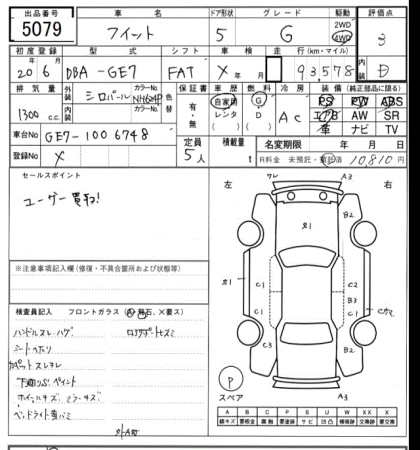 出品番号 車名 ドア形状 グレード 駆動 評価点
5079 フィット 5 G 2WD 4WD 3
初度登録 型式 シフト 車検 走行(km・マイル) 内装
20年6月 DBA-GE7 FAT X年 月 93,578 D
排気量 外装 シロパール カラーNo. NH624P 色替 保証書 車歴 燃料 冷房 装備(純正部品に限る)
1300 c.c. 内装 カラーNo. 有・無 自家用 レンタ G D AC PS PW ABS
エアB AW SR
革 ナビ TV
車台No GE7-1006748 定員 5人 積載 t 名変期限 年 月 日
登録No X R券料金 未預託・預託済 10,810円
セールスポイント
ユーザー買取!
左 右
ワレ A3
S1 B2
S1 C1 C1 C2 B3 C1
C3 B2
A3 A3
P
スペア
※注意事項記入欄(修復・不具合箇所および状態)
検査員記入 フロントガラス(A・飛石、X要ス)
ハンドルスレ・ハゲ
シートヘタリ
カーペットスレキレ
下廻りS1ペイント
ホイールキズ ミラーキズ
ヘッドライト黄バミ
外A有
A B C P S U W X XX
線キズ 要板金 腐蝕 要塗装 サビ 凹凸 補修跡 要交換 交換跡